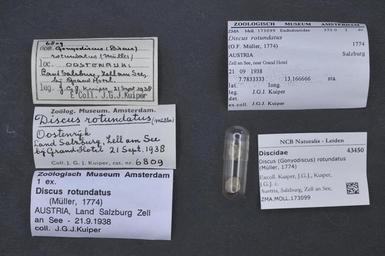 6809
nom. Gonyodiscus (Discus)
rotundatus (Müller)
loc. OOSTENRIJK:
Land Salzburg, Zell am See,
bij Grand Hotel.
leg. J.G.J. Kuiper 21 Sept. 1938
E Coll. J.G.J. KUIPER
Zoölog. Museum. Amsterdam.
Discus rotundatus (Müller)
Oostenrijk
Land Salzburg, Zell am See
bij Grand Hotel 21 Sept. 1938
Coll. J. G. J. Kuiper, cat. nr. 6809
Zoölogisch Museum Amsterdam
1 ex.
Discus rotundatus
(Müller, 1774)
AUSTRIA, Land Salzburg Zell
an See - 21.9.1938
coll. J.G.J.Kuiper
ZOOLOGISCH MUSEUM AMSTERDAM
ZMA Moll. 173099 Endodontoidea
Discus rotundatus
(O.F. Müller, 1774) 1774
AUSTRIA Salzburg
Zell an See, near Grand Hotel
21 09 1938
lat. long.
leg. J.G.J. Kuiper
det.
ex coll. J.G.J. Kuiper
NCB Naturalis - Leiden
Discidae 43450
Discus (Gonyodiscus) rotundatus
(Müller, 1774)
Ex coll. Kuiper, J.G.J., Kuiper,
J.G.J. c.
Austria, Salzburg, Zell an See,
ZMA.MOLL.173099